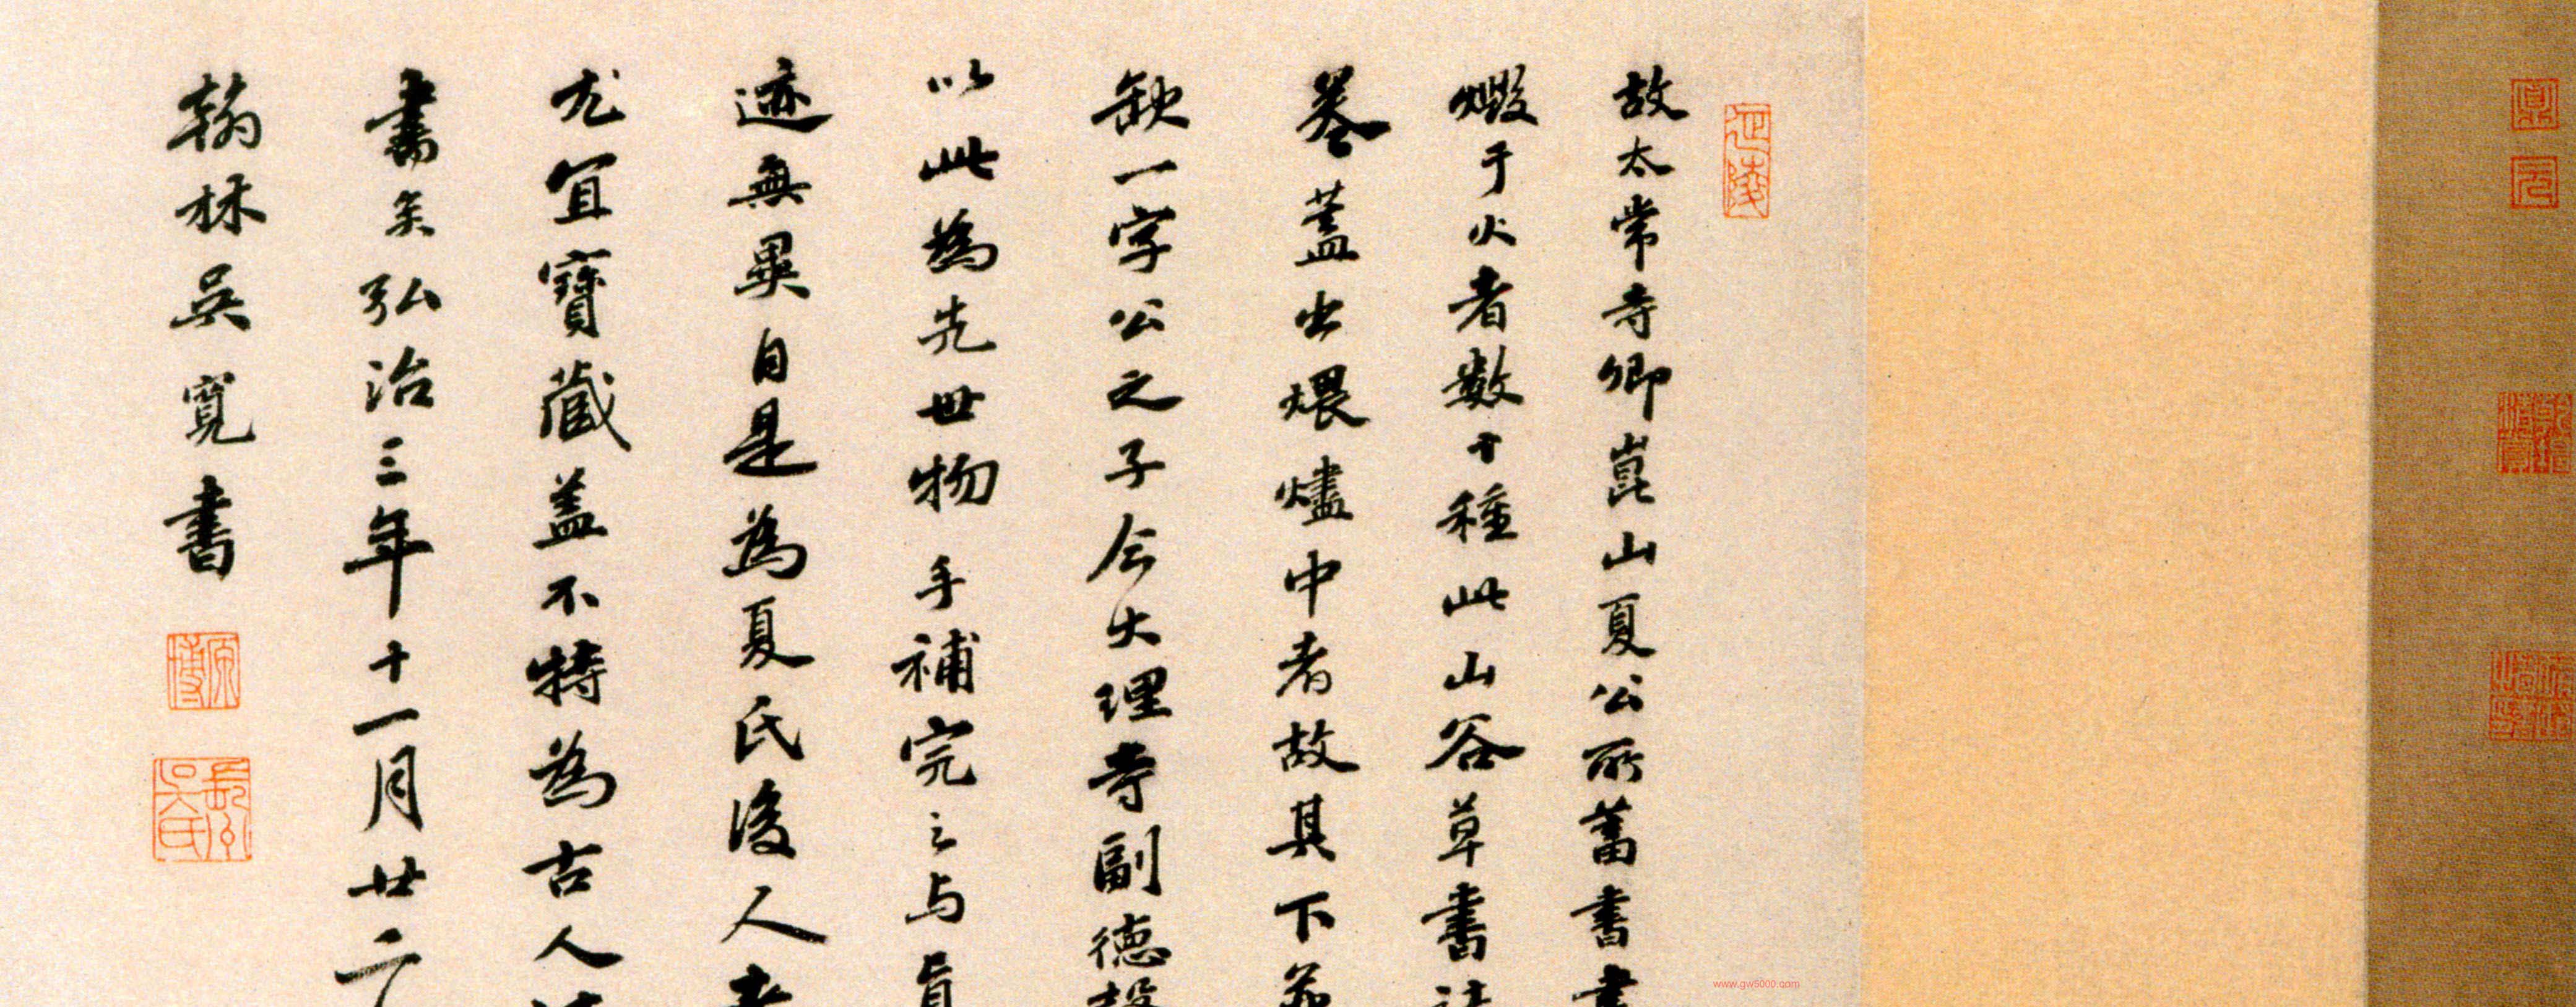 故太常寺卿崑山夏公所蓄書書
燬于火者數十種此山谷草書法
卷蓋出煨燼中者故其下
缺一字公之子今大理寺副德
以此為先世物手補完之与真
迹無異自是為夏氏後人者
尤宜寶藏盖不特為古人
書矣弘治三年十一月廿二
翰林吳寬書
原博
www.gw5000.com